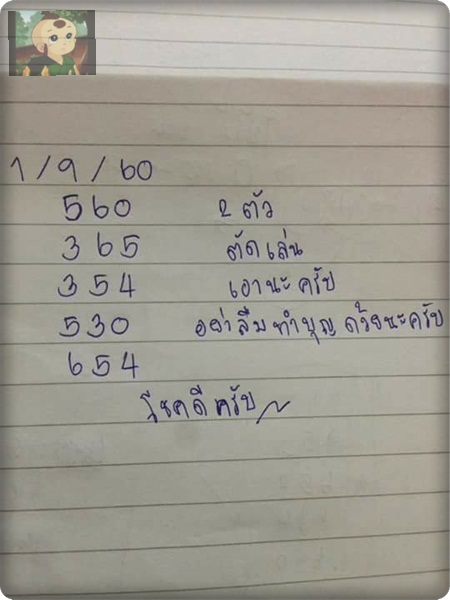 1/9/60
560 2 ตัว
365 ตัดเล่น
354 เอานะครับ
530 อย่าลืมทำบุญด้วยนะครับ
654
โชคดีครับ